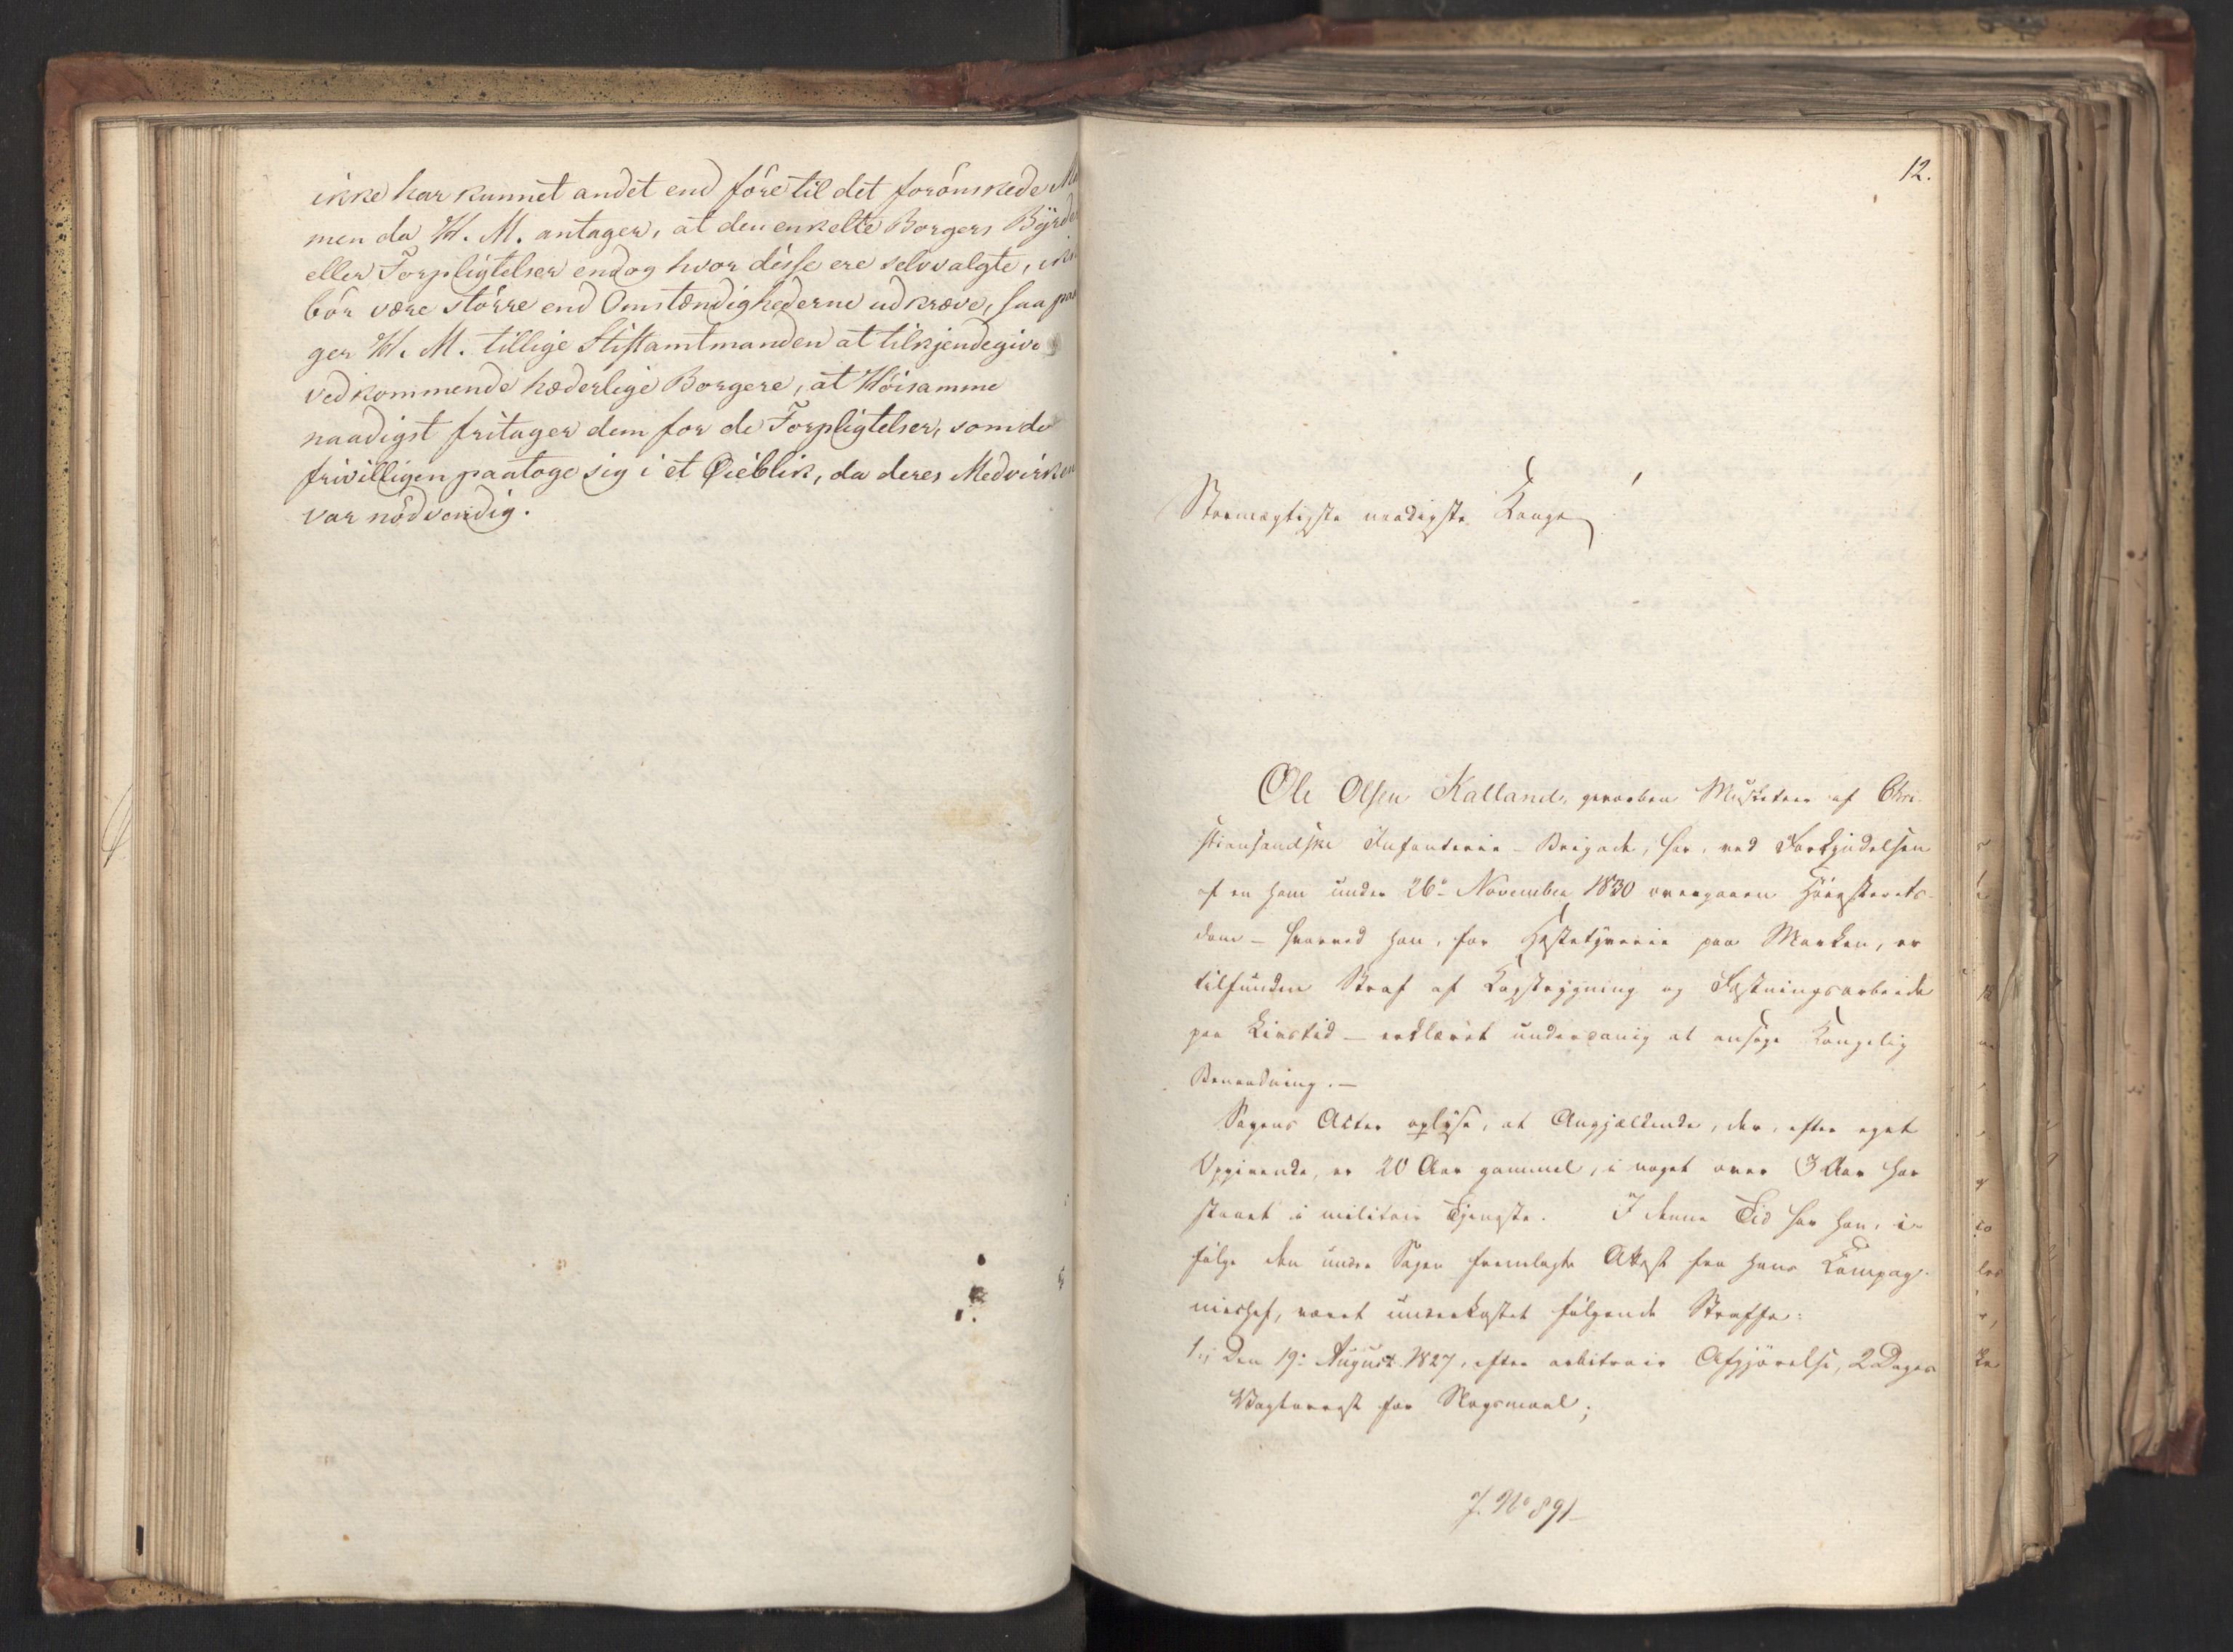 ikke har kunnet andet end fóre til det forónskede
men da H. M. antager, at den enkelte Borgers Byrder
eller Forpligtelser endog hvor disse ere selvvalgte,
bór være stórre end Omstændighederne udkræve, saa
ger H. M. tillige Stiftamtmanden at tilkjendegive
vedkommende hæderlige Borgere, at Hóisamme
naadigst fritager dem for de Forpligtelser, som de
frivilligen paatoge sig i et Øieblik, da deres Medvirken
var nódvendig.
12.
Stormægtigste naadigste Konge!
Ole Olsen Kalland, gevorben Musketeer af Chri-
stiansandske Infanterie-Brigade, har, ved Forkyndelsen
af en ham under 26de November 1830 overgaaen Höiesterets-
dom – hvorved han, for Hestetyverie paa Marken, er
tilfunden Straf af Kagstrygning og Fæstningsarbeide
paa Livstid – erklæret underdanig at ansöge Kongelig
Benaadning. –
Sagens Acter oplyse, at Angjældende, der, efter eget
Opgivende, er 20 Aar gammel, i noget over 3 Aar har
staaet i militair Tjeneste. I denne Tid har han, i-
fölge den under Sagen fremlagte Attest fra hans Compag-
niechef, været underkastet fölgende Straffe:
1.; Den 19: August 1827, efter arbitrair Afgjörelse, 2 Dages
Vagtarrest for Slagsmaal;
J. No 891